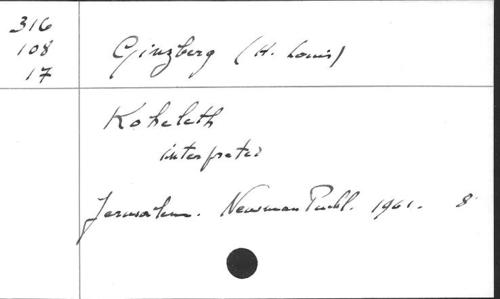 316
108
17
Ginzberg (H. Louis)
Koheleth
interpreted
Jerusalem. Newman Publ. 1961. 8°